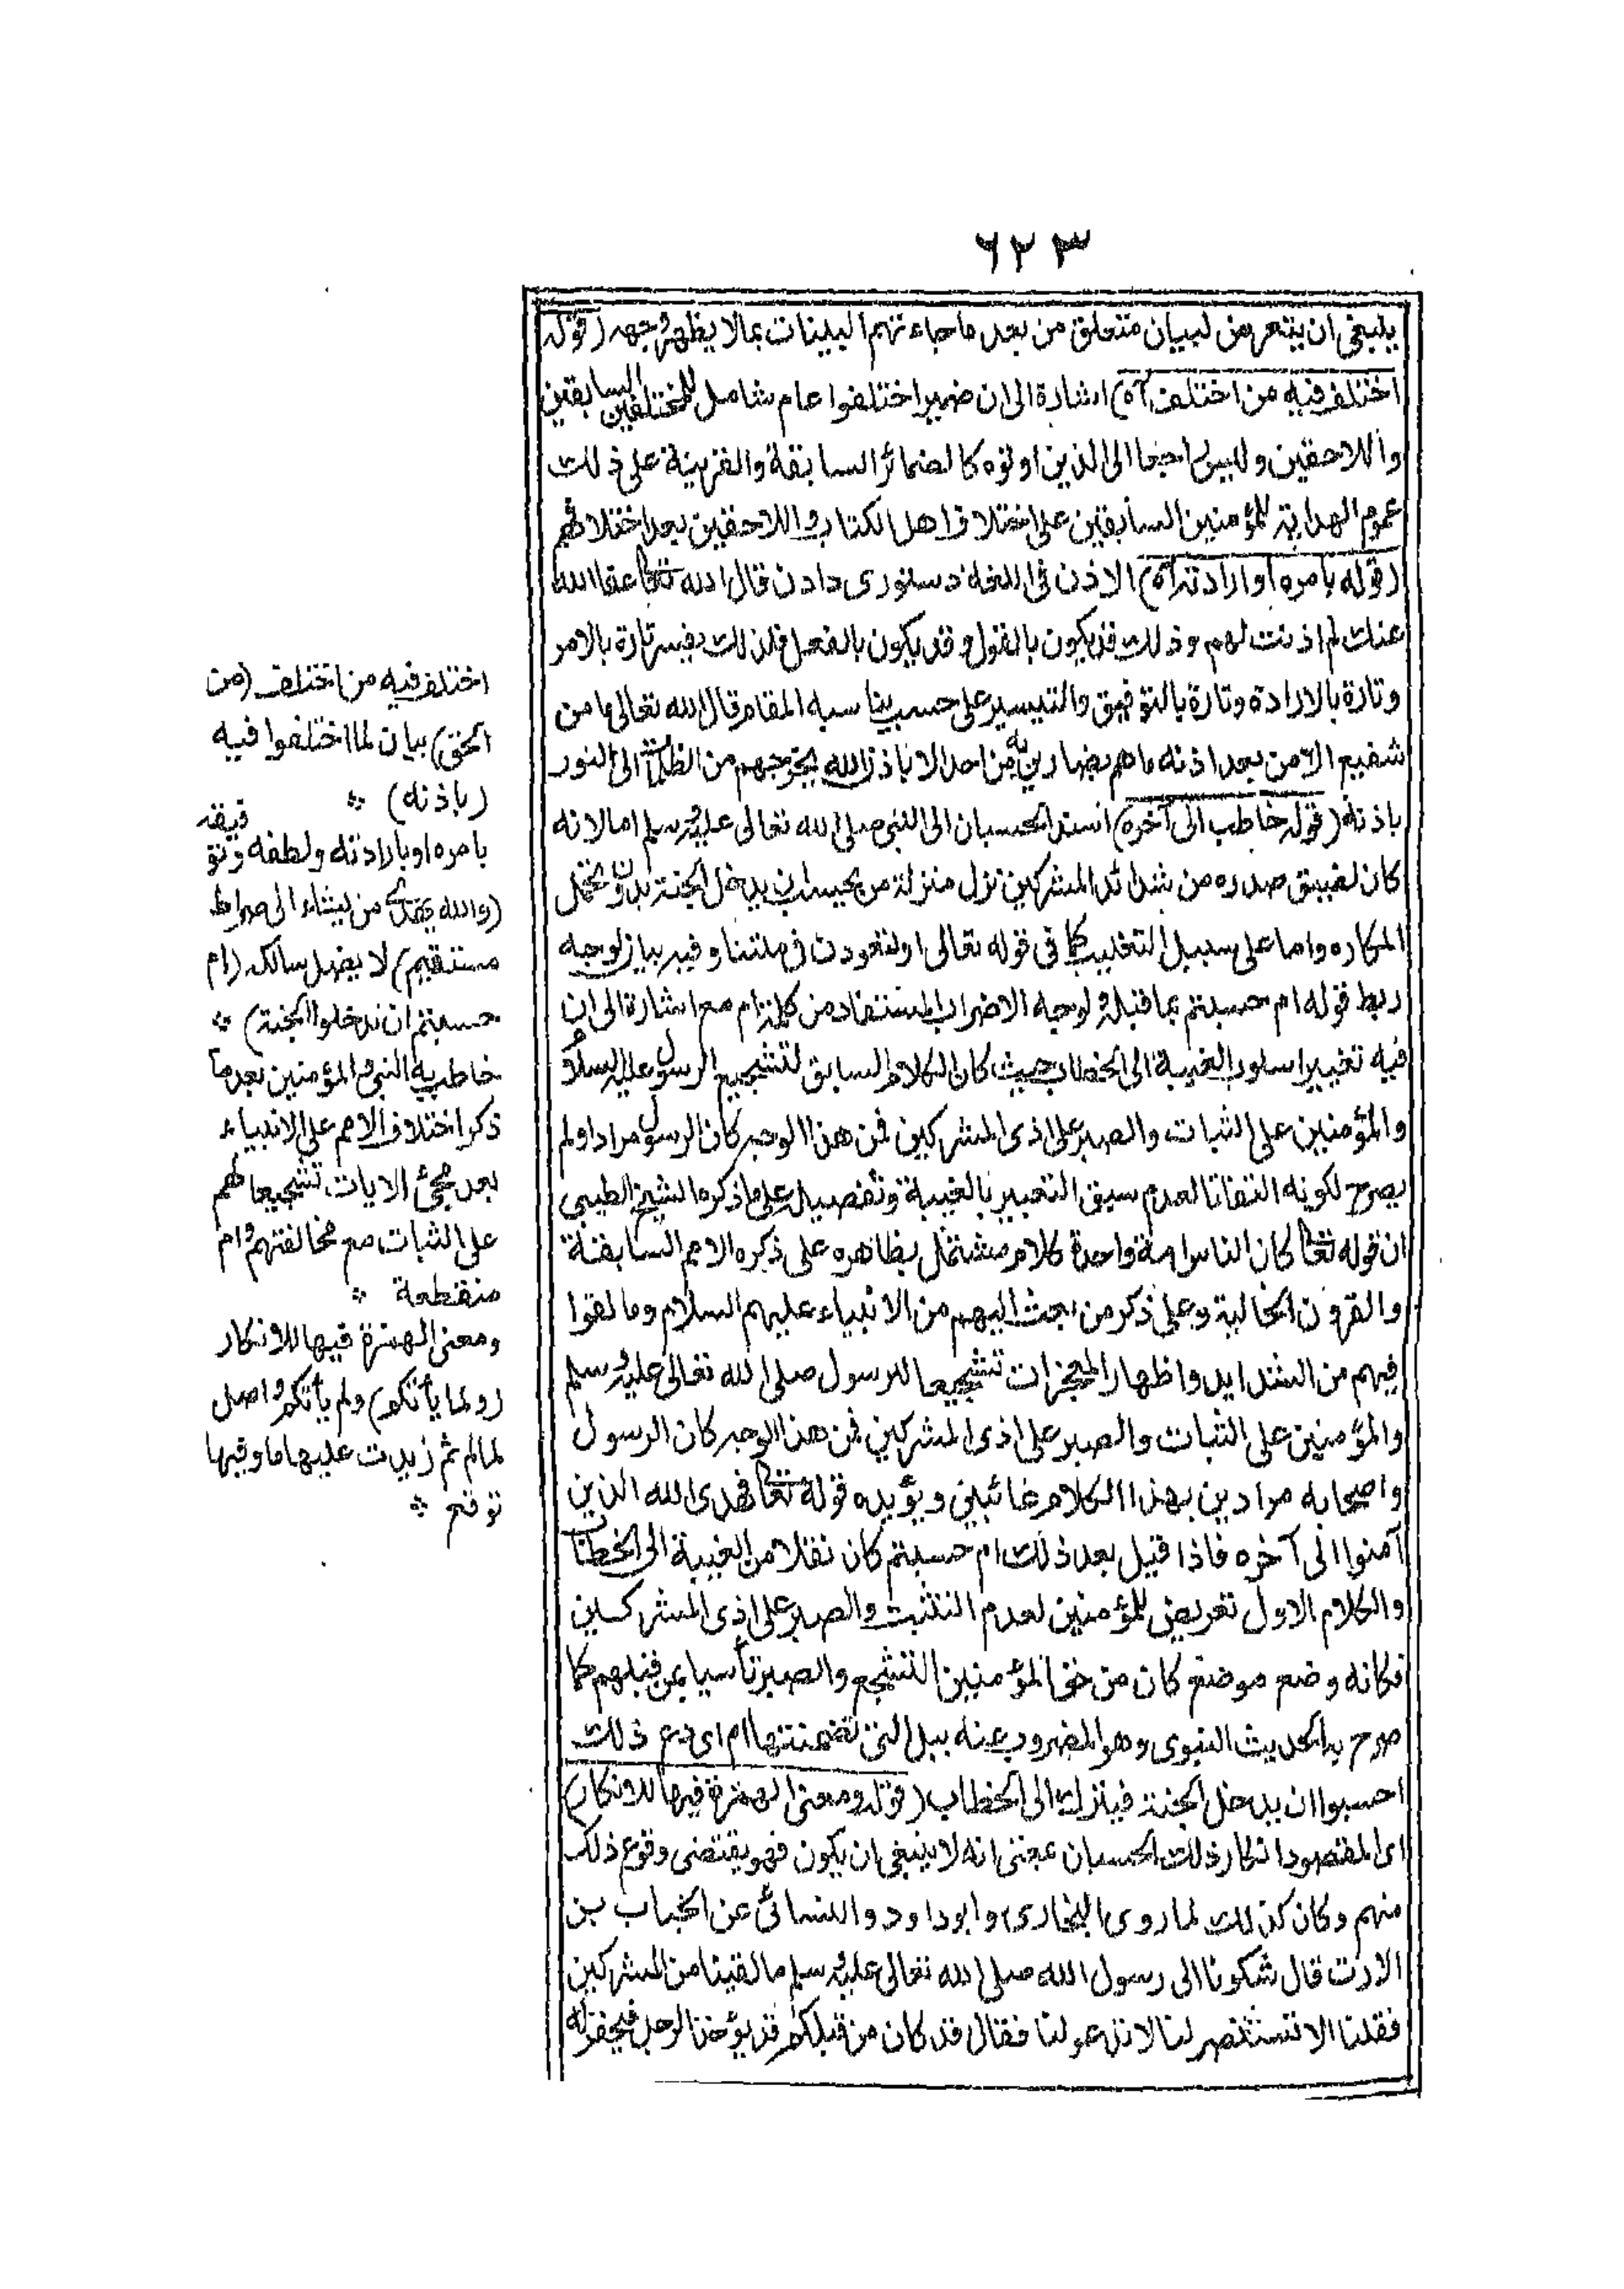 ٦٢٣
ينبغى ان يتعرض لبيان متعلق من بعد ما جاءتهم البينات بما لا يظهر وجهه (قوله
اختلف فيه من اختلف آه) اشارة الى ان ضمير اختلفوا عام شامل للمختلفين السابقين
واللاحقين وليس راجعا الى الذين اوتوه كالضمائر السابقة والقرينة على ذلك
عموم الهداية للمؤمنين السابقين على اختلاف اهل الكتاب واللاحقين بعد اختلافهم
(قوله بامره او ارادته آه) الاذن فى اللغة دستورى دادن قال الله تعا عفا الله
عنك لم اذنت لهم وذلك قد يكون بالقول وقد يكون بالفعل فلذلك يفسر تارة بالامر
وتارة بالارادة وتارة بالتوفيق والتيسير على حسب يناسبه المقام قال الله تعالى ما من
شفيع الا من بعد اذنه ما هم بضارين به من احد الا باذن الله يخرجهم من الظلمت الى النور
باذنه (قوله خاطب الى آخره) اسند الحسبان الى النبى صلى الله تعالى عليه وسلم اما لانه
كان لضيق صدره من شدائد المشركين نزل منزلة من يحسب ان يدخل الجنة بدون تحمل
المكاره واما على سبيل التغليب كما فى قوله تعالى او لتعودن فى ملتنا وفيه بيان لوجه
ربط قوله ام حسبتم بما قبله ولوجه الاضراب المستفاد من كلمة ام مع اشارة الى ان
فيه تغيير اسلوب الغيبة الى الخطاب حيث كان الكلام السابق لتشجيع الرسول عليه السلام
والمؤمنين على الثبات والصبر على اذى المشركين فمن هذا الوجه كان الرسول مرادا ولم
يصرح لكونه التفاتا لعدم سبق التعبير بالغيبة وتفصيله على ما ذكره الشيخ الطيبى
ان قوله تعا كان الناس امة واحدة كلام مشتمل بظاهره على ذكره الامم السابقة
والقرون الخالية وعلى ذكر من بعث اليهم من الانبياء عليهم السلام وما لقوا
فيهم من الشدايد واظهار المعجزات تشجيعا للرسول صلى الله تعالى عليه وسلم
والمؤمنين على الثبات والصبر على اذى المشركين فمن هذا الوجه كان الرسول
واصحابه مرادين بهذا الكلام غائبين ويؤيده قوله تعا فهدى الله الذين
آمنوا الى آخره فاذا قيل بعد ذلك ام حسبتم كان نقلا من الغيبة الى الخطاب
والكلام الاول تعريض للمؤمنين لعدم التثبت والصبر على اذى المشركين
فكانه وضع موضع كان من حق المؤمنين التشجع والصبر تأسيا بمن قبلهم كما
صرح به الحديث النبوى وهو المضروب عنه ببل التى تضمنتها ام اى دع ذلك
احسبوا ان يدخل الجنة فينزل الى الخطاب (قوله ومعنى الهمزة فيها للانكار)
اى المقصود انكار ذلك الحسبان بمعنى انه لا ينبغى ان يكون فهو يقتضى وقوع ذلك
منهم وكان كذلك لما روى البخارى وابو داود والنسائى عن الخباب بن
الارت قال شكونا الى رسول الله صلى الله تعالى عليه وسلم ما لقينا من المشركين
فقلنا الا تستنصر لنا الا تدعو لنا فقال قد كان من قبلكم قد يؤخذ الرجل فيحفر له
اختلف فيه من اختلف (من
الحق) بيان لما اختلفوا فيه
(باذنه) ؞
بامره او بارادته ولطفه وتو
فيقه
(والله يهدى من يشاء الى صراط
مستقيم) لا يضل سالكه (ام
حسبتم ان تدخلوا الجنة) ؞
خاطب به النبى والمؤمنين بعد ما
ذكر اختلاف الامم على الانبياء
بعد مجئ الايات تشجيعا لهم
على الثبات مع مخالفتهم وام
منقطعة ؞
ومعنى الهمزة فيها للانكار
(ولما يأتكم) ولم يأتكم واصل
لما لم ثم زيدت عليها ما وفيها
توقع ؞